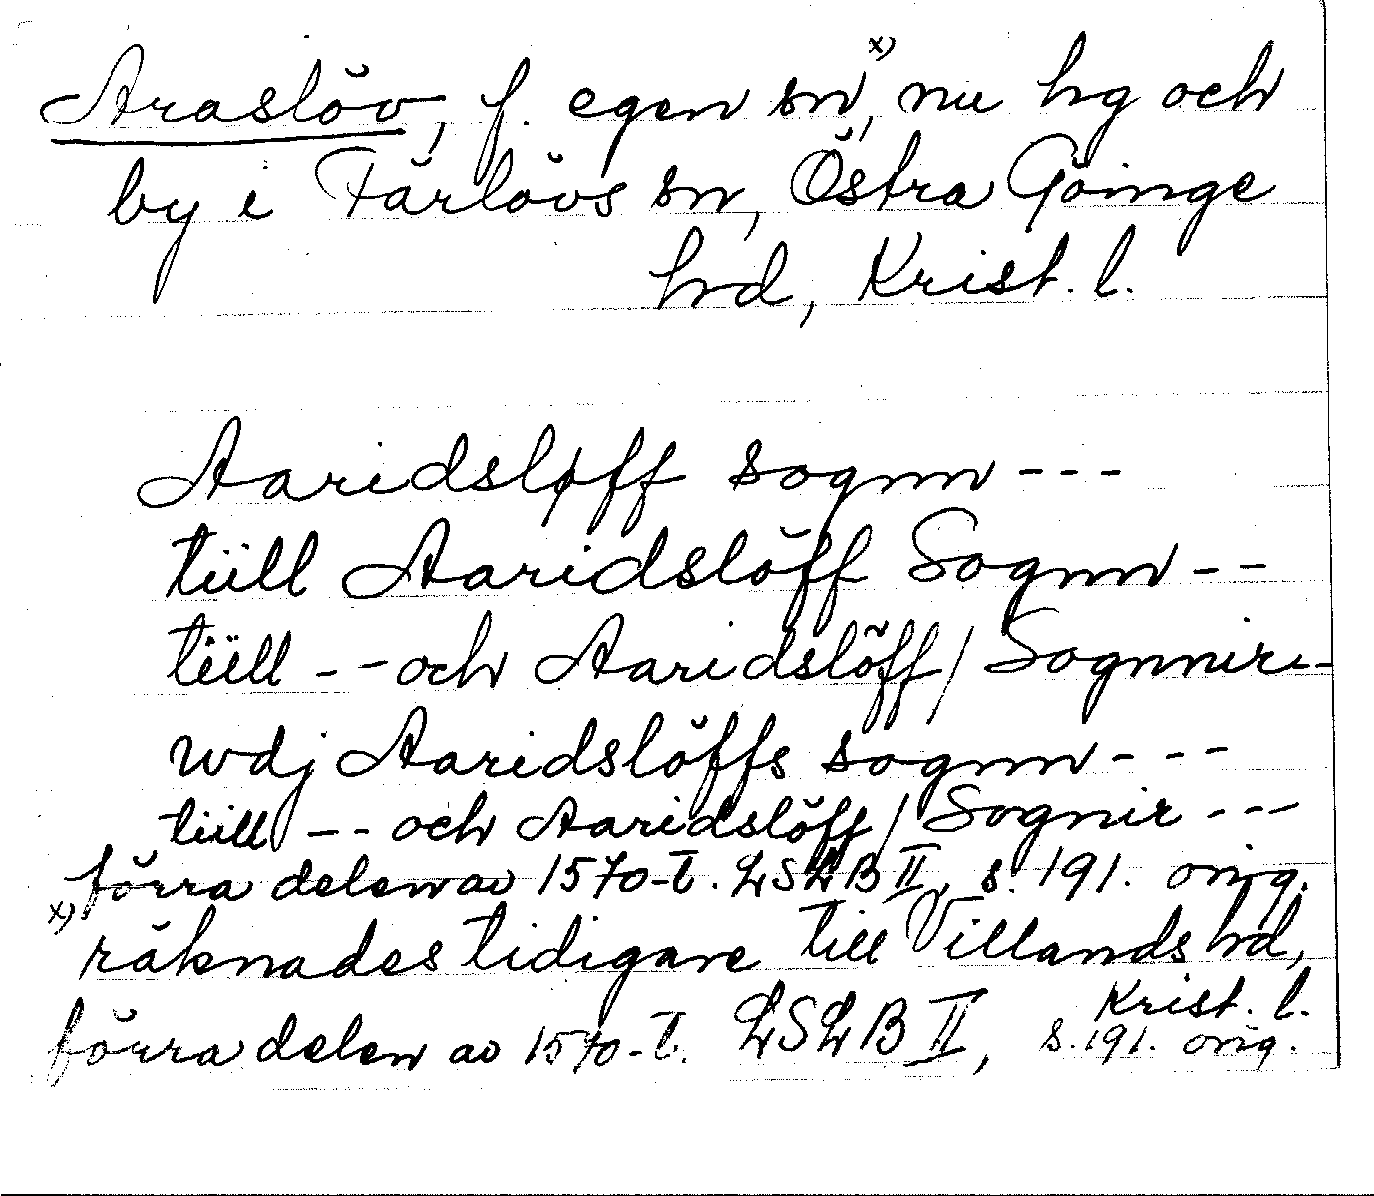 Araslöv, f. egen sn x), nu hg och
by i Färlövs sn, Östra Göinge
hrd, Krist. l.
Aaridsløff sognn ---
tüll Aaridslöff Sognn --
tüll -- och Aaridslöff/ Sognnir --
wdj Aaridslöffs sognn ---
tüll -- och Aaridslöff/ Sognir ---
förra delen av 1570-t. LSLB II, s. 191. orig.
x) räknades tidigare till Villands hrd,
Krist. l.
förra delen av 1570-t. LSLB II, s. 191. orig.